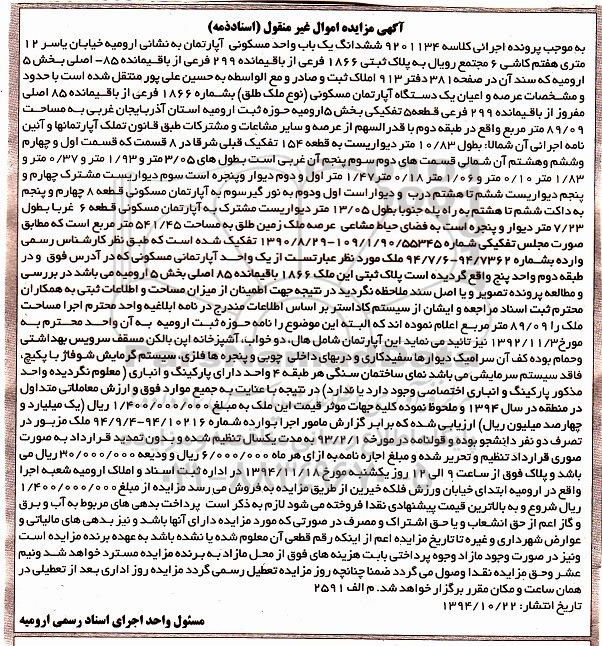 آگهی مزایده اموال غیر منقول (اسنادذمه)
به موجب پرونده اجرائی کلاسه ۹۲۰۱۱۳۴ ششدانگ یک باب واحد مسکونی آپارتمان به نشانی ارومیه خیابان یاسر ۱۲
متری هفتم کاشی ۶ مجتمع رویال به پلاک ثبتی ۱۸۶۶ فرعی از باقیمانده ۲۹۹ فرعی از باقیمانده ۸۵- اصلی بخش ۵
ارومیه که سند آن در صفحه ۳۸۱ دفتر ۹۱۳ املاک ثبت و صادر و مع الواسطه به حسین علی پور منتقل شده است با حدود
و مشخصات عرصه و اعیان یک دستگاه آپارتمان مسکونی (نوع ملک طلق) بشماره ۱۸۶۶ فرعی از باقیمانده ۸۵ اصلی
مفروز از باقیمانده ۲۹۹ فرعی قطعه ۵ تفکیکی بخش ۵ ارومیه حوزه ثبت ارومیه استان آذربایجان غربی به مساحت
۸۹/۰۹ متر مربع واقع در طبقه دوم با قدرالسهم از عرصه و سایر مشاعات و مشترکات طبق قانون تملک آپارتمانها و آئین
نامه اجرائی آن شمالا: بطول ۱۰/۸۳ متر دیواریست به قطعه ۱۵۴ تفکیک قبلی شرقا در ۸ قسمت که قسمت اول و چهارم
وششم وهشتم آن شمالی قسمت های دوم سوم پنجم آن غربی است بطول های ۳/۰۵ متر و ۱/۹۳ متر و ۰/۳۷ متر و
۱/۸۳ متر ۰/۱۰ متر و ۱/۰۶ متر و ۰/۱۸ متر ۱/۴۷ متر اول و دوم دیوار وپنجره است سوم دیواریست مشترک چهارم و
پنجم دیواریست ششم تا هشتم درب و دیوار است اول ودوم به نور گیر سوم به آپارتمان مسکونی قطعه ۸ چهارم و پنجم
به داکت ششم تا هشتم به راه پله جنوبا بطول ۱۳/۰۵ متر دیواریست مشترک به آپارتمان مسکونی قطعه ۶ غربا بطول
۷/۲۳ متر دیوار و پنجره است به فضای حیاط مشاعی عرصه ملک زمین طلق به مساحت ۵۲۱/۴۵ متر مربع است که مطابق
صورت مجلس تفکیکی شماره ۱۰۹/۱/۹۰/۵۵۳۴۵-۱۳۹۰/۸/۲۹ تفکیک شده است که طبق نظر کارشناس رسمی
وارده بشماره ۹۴/۷۳۶۲-۹۴/۷/۶ ملک مورد نظر عبارتست از یک واحد آپارتمانی مسکونی که در آدرس فوق و در
طبقه دوم واحد پنج واقع گردیده است پلاک ثبتی این ملک ۱۸۶۶ باقیمانده ۸۵ اصلی بخش ۵ ارومیه می باشد در بررسی
و مطالعه پرونده تصویر و یا اصل سند ملاحظه نگردید در نتیجه جهت اطمینان از میزان مساحت و اطلاعات ثبتی به همکاران
محترم ثبت اسناد مراجعه و ایشان از سیستم کاداستر بر اساس اطلاعات مندرج در نامه ابلاغیه واحد محترم اجرا مساحت
ملک را ۸۹/۰۹ متر مربع اعلام نموده اند که البته این موضوع را نامه حوزه ثبت ارومیه به آن واحد محترم به
مورخ ۱۳۹۲/۱۱/۳ نیز تائید می نماید این آپارتمان شامل هال، دو خواب، آشپزخانه اپن بالکن مسقف سرویس بهداشتی
وحمام بوده کف آن سرامیک دیوارها سفیدکاری و دربهای داخلی چوبی و پنجره ها فلزی سیستم گرمایش شوفاژ با پکیچ،
فاقد سیستم سرمایشی می باشد نمای ساختمان سنگی هر طبقه ۴ واحد دارای پارکینگ و انباری ( معلوم نگردیده واحد
مذکور پارکینگ و انباری اختصاصی وجود دارد یا ندارد) در نتیجه با عنایت به جمیع موارد فوق و ارزش معاملاتی متداول
در منطقه در سال ۱۳۹۴ و ملحوظ نموده کلیه جهات موثر قیمت این ملک به مبلغ ۱/۴۰۰/۰۰۰/۰۰۰ ریال (یک میلیارد و
چهارصد میلیون ریال) ارزیابی شده که برابر گزارش مامور اجرا بوارده شماره ۹۴/۱۰۲۱۶-۹۴/۹/۴ ملک مزبور در
تصرف دو نفر دانشجو بوده و قولنامه در مورخه ۹۳/۲/۱ به مدت یکسال تنظیم شده و بدون تمدید قرارداد به صورت
صوری قرارداد تنظیم و تحریر شده و مبلغ اجاره نامه به ازای هر ماه ۶/۰۰۰/۰۰۰ ریال و ودیعه ۳۰/۰۰۰/۰۰۰ ریال می
باشد و پلاک فوق از ساعت ۹ الی ۱۲ روز یکشنبه مورخ ۱۳۹۴/۱۱/۱۸ در اداره ثبت اسناد و املاک ارومیه شعبه اجرا
واقع در ارومیه ابتدای خیابان ورزش فلکه خیرین از طریق مزایده به فروش می رسد مزایده از مبلغ ۱/۴۰۰/۰۰۰/۰۰۰
ریال شروع و به بالاترین قیمت پیشنهادی نقدا فروخته می شود لازم به ذکر است پرداخت بدهی های مربوط به آب و برق
و گاز اعم از حق انشعاب و یا حق اشتراک و مصرف در صورتی که مورد مزایده دارای آنها باشد و نیز بدهی های مالیاتی و
عوارض شهرداری و غیره تا تاریخ مزایده اعم از اینکه رقم قطعی آن معلوم شده یا نشده باشد به عهده برنده مزایده است
ونیز در صورت وجود مازاد وجوه پرداختی بابت هزینه های فوق از محل مازاد به برنده مزایده مسترد خواهد شد ونیم
عشر وحق مزایده نقدا وصول می گردد ضمنا چنانچه روز مزایده تعطیل رسمی گردد مزایده روز اداری بعد از تعطیلی در
همان ساعت و مکان مقرر برگزار خواهد شد. م الف ۲۵۹۱
تاریخ انتشار: ۱۳۹۴/۱۰/۲۲
مسئول واحد اجرای اسناد رسمی ارومیه